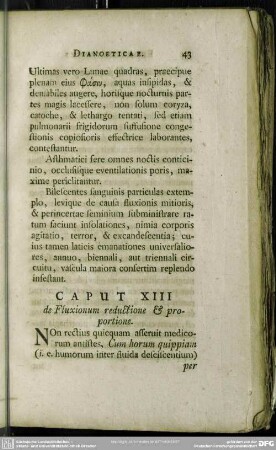 DIANOETICAE. 43
Ultimas vero Lunae quadras, praecipue
plenam eius φάσιν, aquas insipidas, &
demabiles augere, horisque nocturnis par-
tes magis lacessere, non solum coryza,
catoche, & lethargo tentati, sed etiam
pulmonarii frigidorum suffusione conge-
stionis copiosioris effectrice laborantes,
contestantur.
Asthmatici fere omnes noctis conticí-
nio, occlusisque eventilationis poris, ma-
xime periclitantur.
Bilescentes sanguinis particulas extem-
plo, levique de causa fluxionis mitioris,
& perincertae seminium subministrare ra-
tum faciunt insolationes, nimia corporis
agitatio, terror, & excandescentia; cu-
ius tamen laticis emanationes universalio-
res, annuo, biennali, aut triennali cir-
cuitu, vascula maiora consertim replendo
infestant.
CAPUT XIII
de Fluxionum reductione & pro-
portione.
Non rectius quicquam asseruit medico-
rum antistes, Cum horum quippiam
(i. e. humorum inter fluida desciscentium)
per